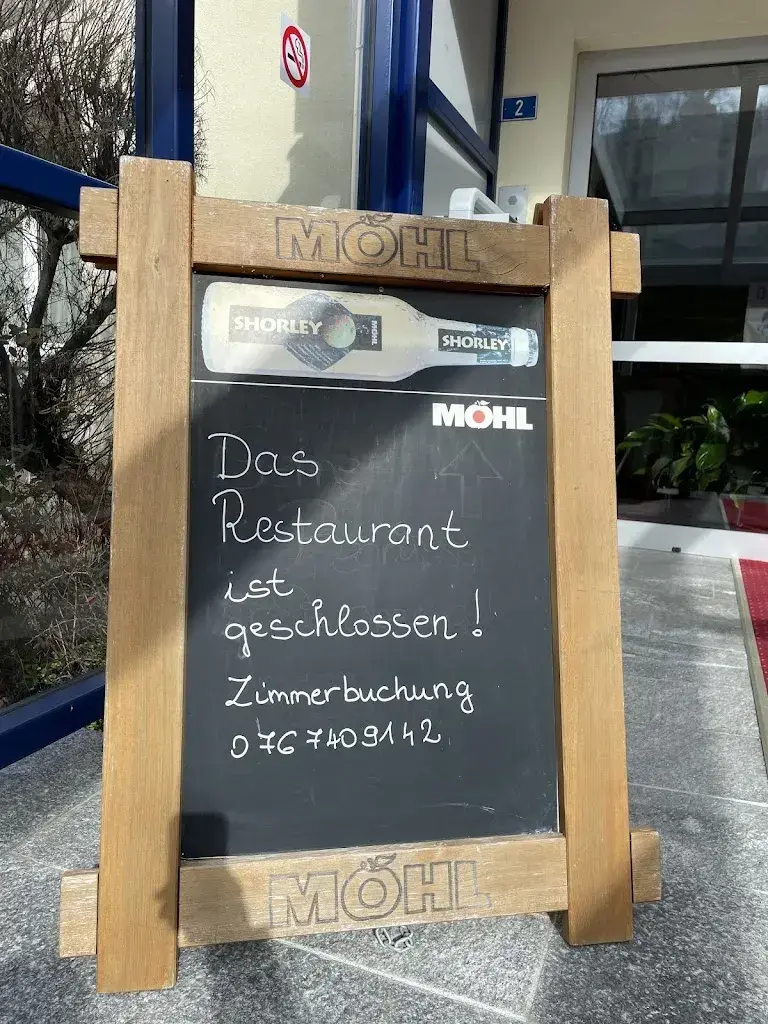 2
MÖHL
SHORLEY MÖHL SHORLEY
MÖHL
Das
Restaurant
ist
geschlossen!
Zimmerbuchung
0767409142
MÖHL